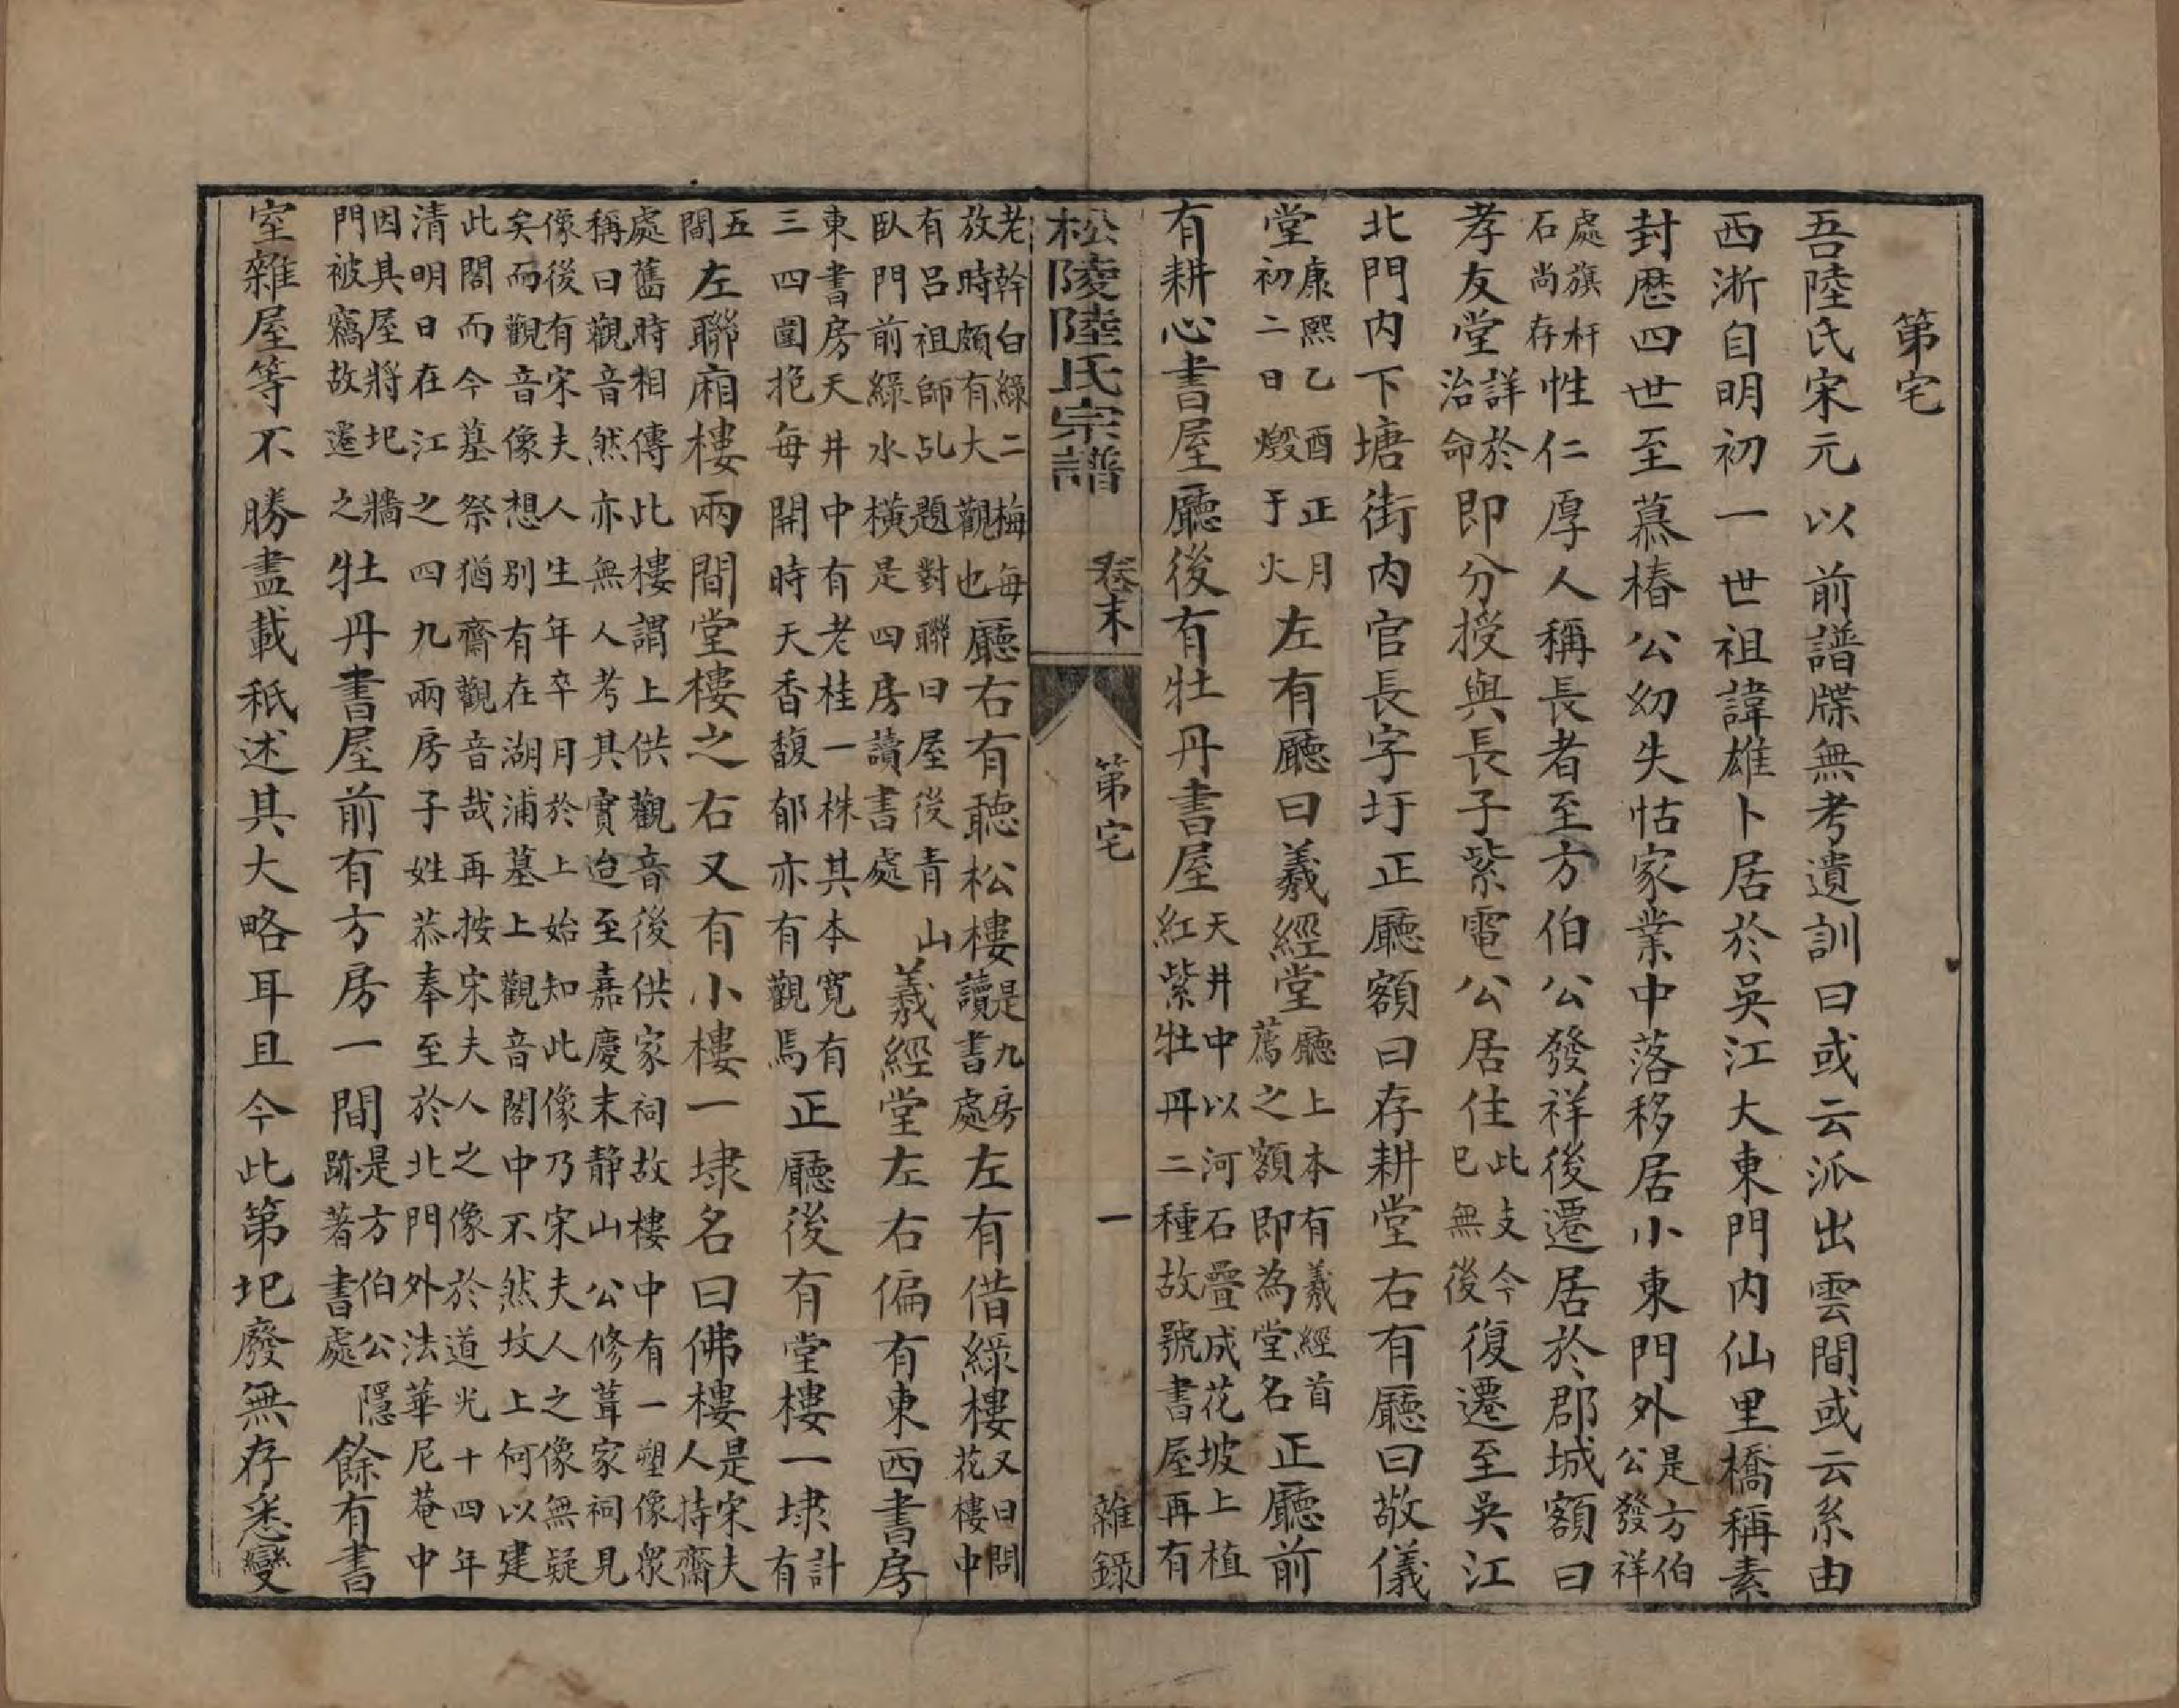 第宅
吾陸氏宋元以前譜牒無考遺訓曰或云派出雲間或云系由
西淅自明初一世祖諱雄卜居於吳江大東門内仙里橋稱素
封歷四世至慕椿公幼失怙家業中落移居小東門外是方伯公發祥
處旗杆石尚存性仁厚人稱長者至方伯公發祥後遷居於郡城額曰
孝友堂詳於治命即分授與長子紫電公居住此支今已無後復遷至吳江
北門内下塘街内官長字圩正廳額曰存耕堂右有廳曰敬儀
堂康熙乙酉正月初二日燬于火左有廳曰羲經堂廳上本有羲經首薦之額即為堂名正廳前
有耕心書屋廳後有牡丹書屋天井中以河石疊成花坡上植紅紫牡丹二種故號書屋再有
松陵陸氏宗譜 卷末 第宅 一 雜録
老幹白綠二梅每放時頗有大觀也廳右有聽松樓是九房讀書處左有借綠樓又曰問花樓中
有呂祖師乩題對聯曰屋後青山臥門前綠水橫是四房讀書處羲經堂左右偏有東西書房
東書房天井中有老桂一株其本寬有三四圍抱每開時天香馥郁亦有觀焉正廳後有堂樓一埭計有
五間左聯廂樓兩間堂樓之右又有小樓一埭名曰佛樓是宋夫人持齋
處舊時相傳此樓謂上供觀音後供家祠故樓中有一塑像眾
稱曰觀音然亦無人考其實迨至嘉慶末静山公修葺家祠見
像後有宋夫人生年卒月於上始知此像乃宋夫人之像無疑
矣而觀音像想别有在湖浦墓上觀音閣中不然坟上何以建
此閣而今墓祭猶齋觀音哉再按宋夫人之像於道光十四年
清明日在江之四九兩房子姓恭奉至於北門外法華尼菴中
因其屋將圮牆門被竊故遷之牡丹書屋前有方房一間是方伯公隱跡著書處餘有書
室雜屋等不勝盡載秖述其大略耳且今此第圮廢無存悉變